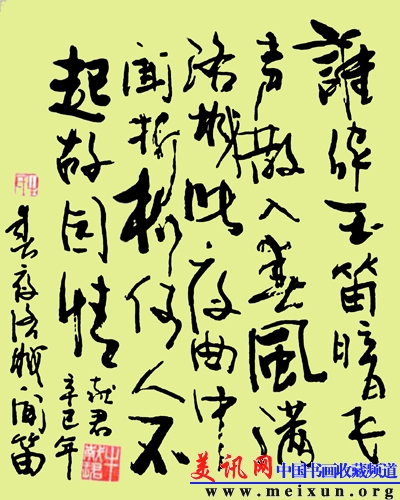 誰家玉笛暗飞
声散入春風满
洛城此夜曲中
闻折柳何人不
起故园情
献君
辛巳年
春夜洛城闻笛
美讯网 中国书画收藏频道
www.meixun.org